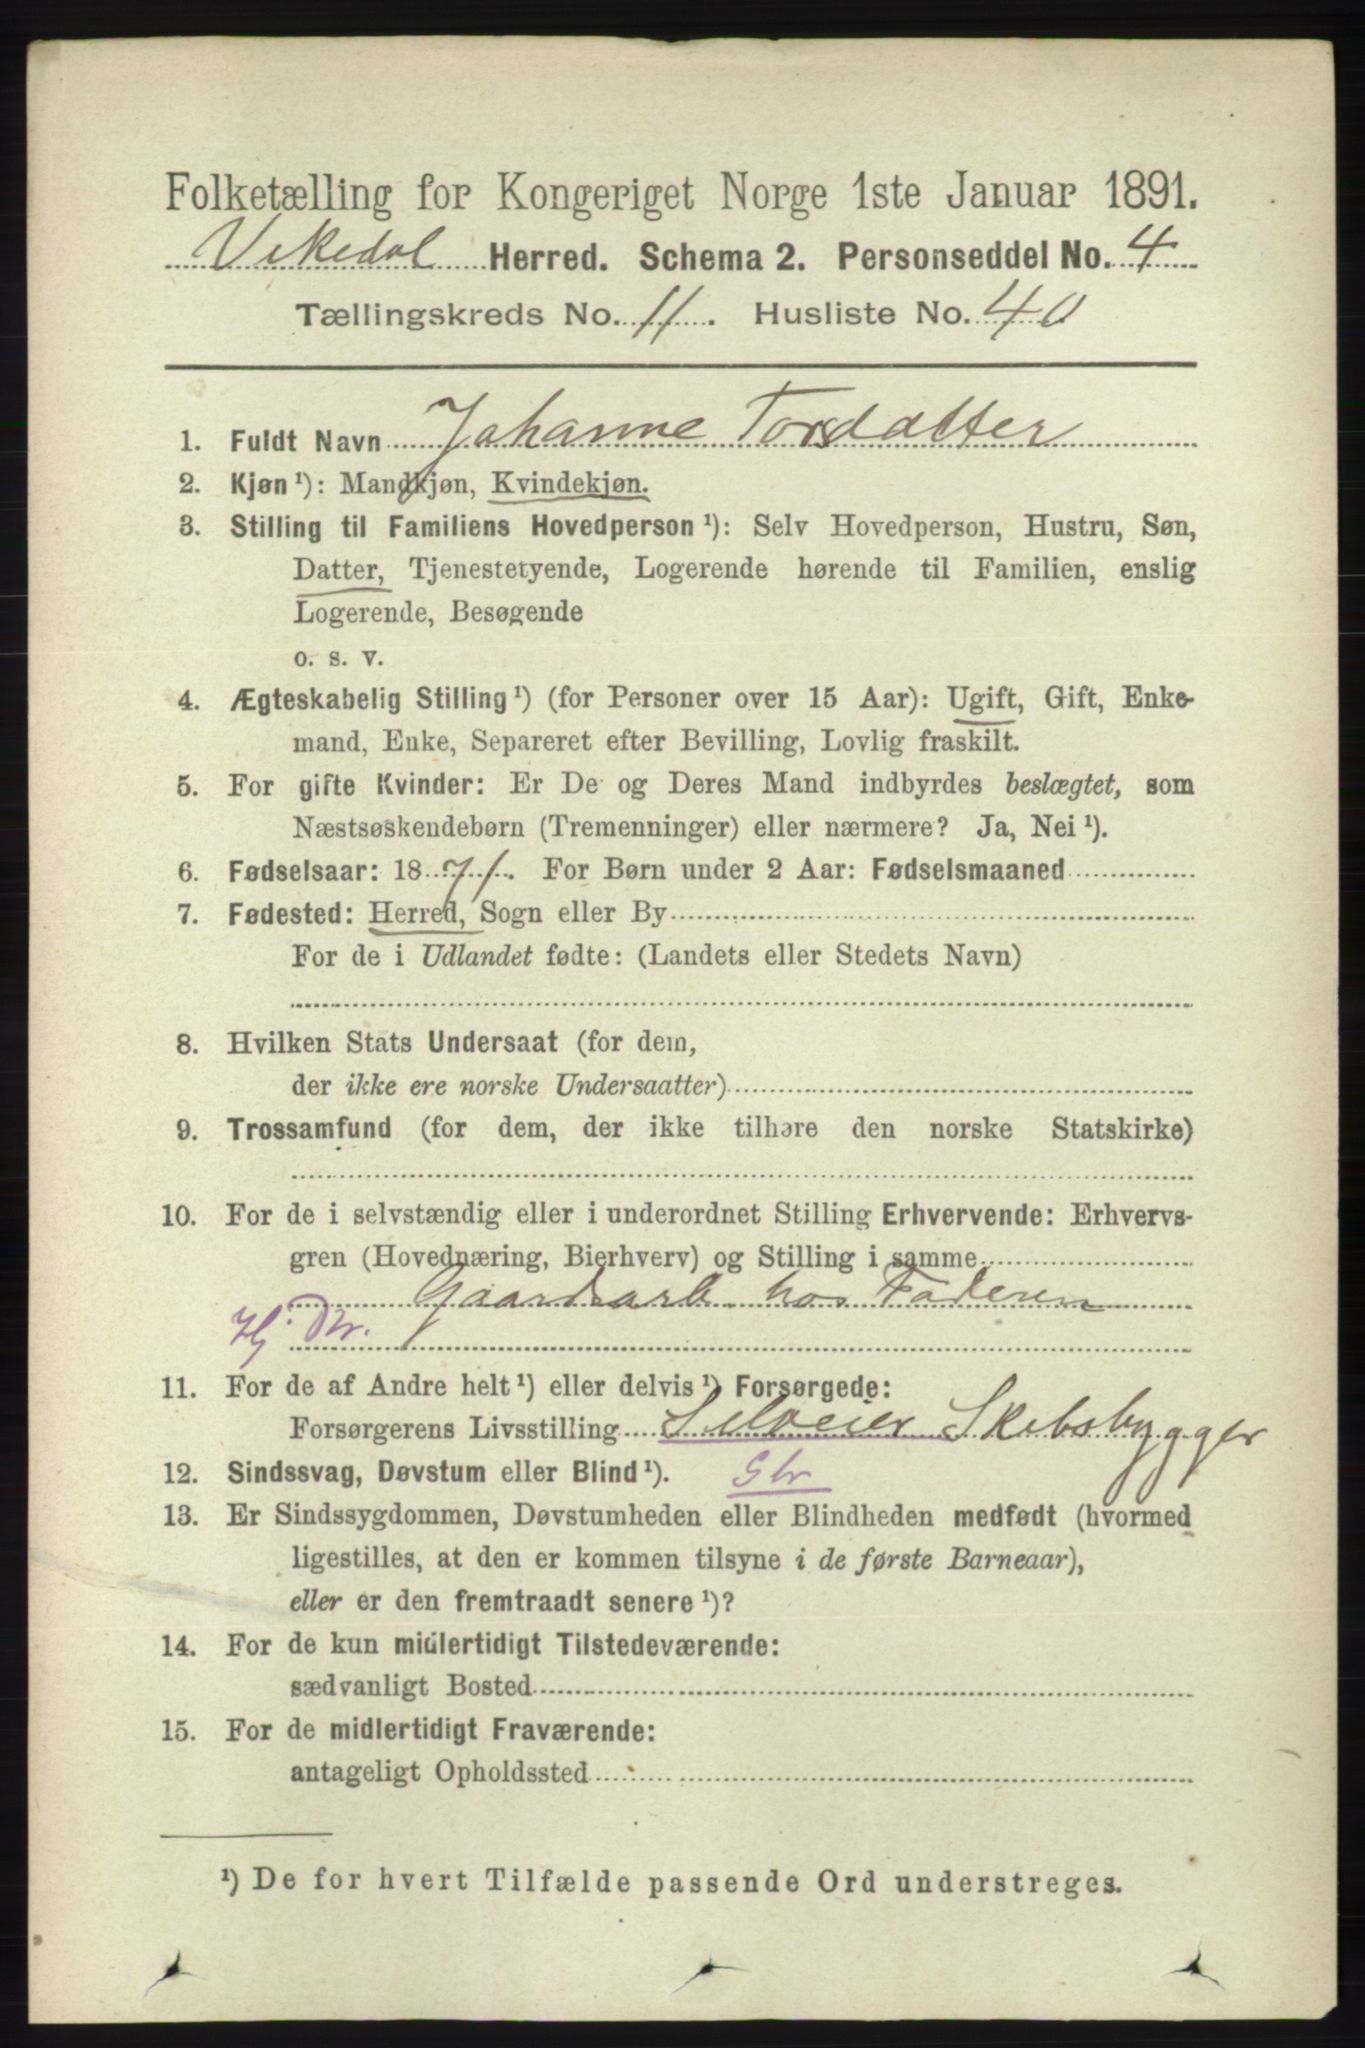 Folketælling for Kongeriget Norge 1ste Januar 1891.
Vikedal Herred. Schema 2. Personseddel No. 4
Tællingskreds No. 11. Husliste No. 40
1. Fuldt Navn Johanne Torsdatter
2. Kjøn¹): Mandkjøn, Kvindekjøn.
3. Stilling til Familiens Hovedperson¹): Selv Hovedperson, Hustru, Søn,
Datter, Tjenestetyende, Logerende hørende til Familien, enslig
Logerende, Besøgende
o. s. v.
4. Ægteskabelig Stilling¹) (for Personer over 15 Aar): Ugift, Gift, Enke-
mand, Enke, Separeret efter Bevilling, Lovlig fraskilt.
5. For gifte Kvinder: Er De og Deres Mand indbyrdes beslægtet, som
Næstsøskendebørn (Tremenninger) eller nærmere? Ja, Nei¹).
6. Fødselsaar: 1871. For Børn under 2 Aar: Fødselsmaaned
7. Fødested: Herred, Sogn eller By
For de i Udlandet fødte: (Landets eller Stedets Navn)
8. Hvilken Stats Undersaat (for dem,
der ikke ere norske Undersaatter)
9. Trossamfund (for dem, der ikke tilhøre den norske Statskirke)
10. For de i selvstændig eller i underordnet Stilling Erhvervende: Erhvervs-
gren (Hovednæring, Bierhverv) og Stilling i samme
Gaardsarb hos Faderen
Hj. Dtr.
11. For de af Andre helt¹) eller delvis¹) Forsørgede:
Forsørgerens Livsstilling Selveier Skibsbygger
12. Sindssvag, Døvstum eller Blind¹). Gbr
13. Er Sindssygdommen, Døvstumheden eller Blindheden medfødt (hvormed
ligestilles, at den er kommen tilsyne i de første Barneaar),
eller er den fremtraadt senere¹)?
14. For de kun midlertidigt Tilstedeværende:
sædvanligt Bosted
15. For de midlertidigt Fraværende:
antageligt Opholdssted
¹) De for hvert Tilfælde passende Ord understreges.